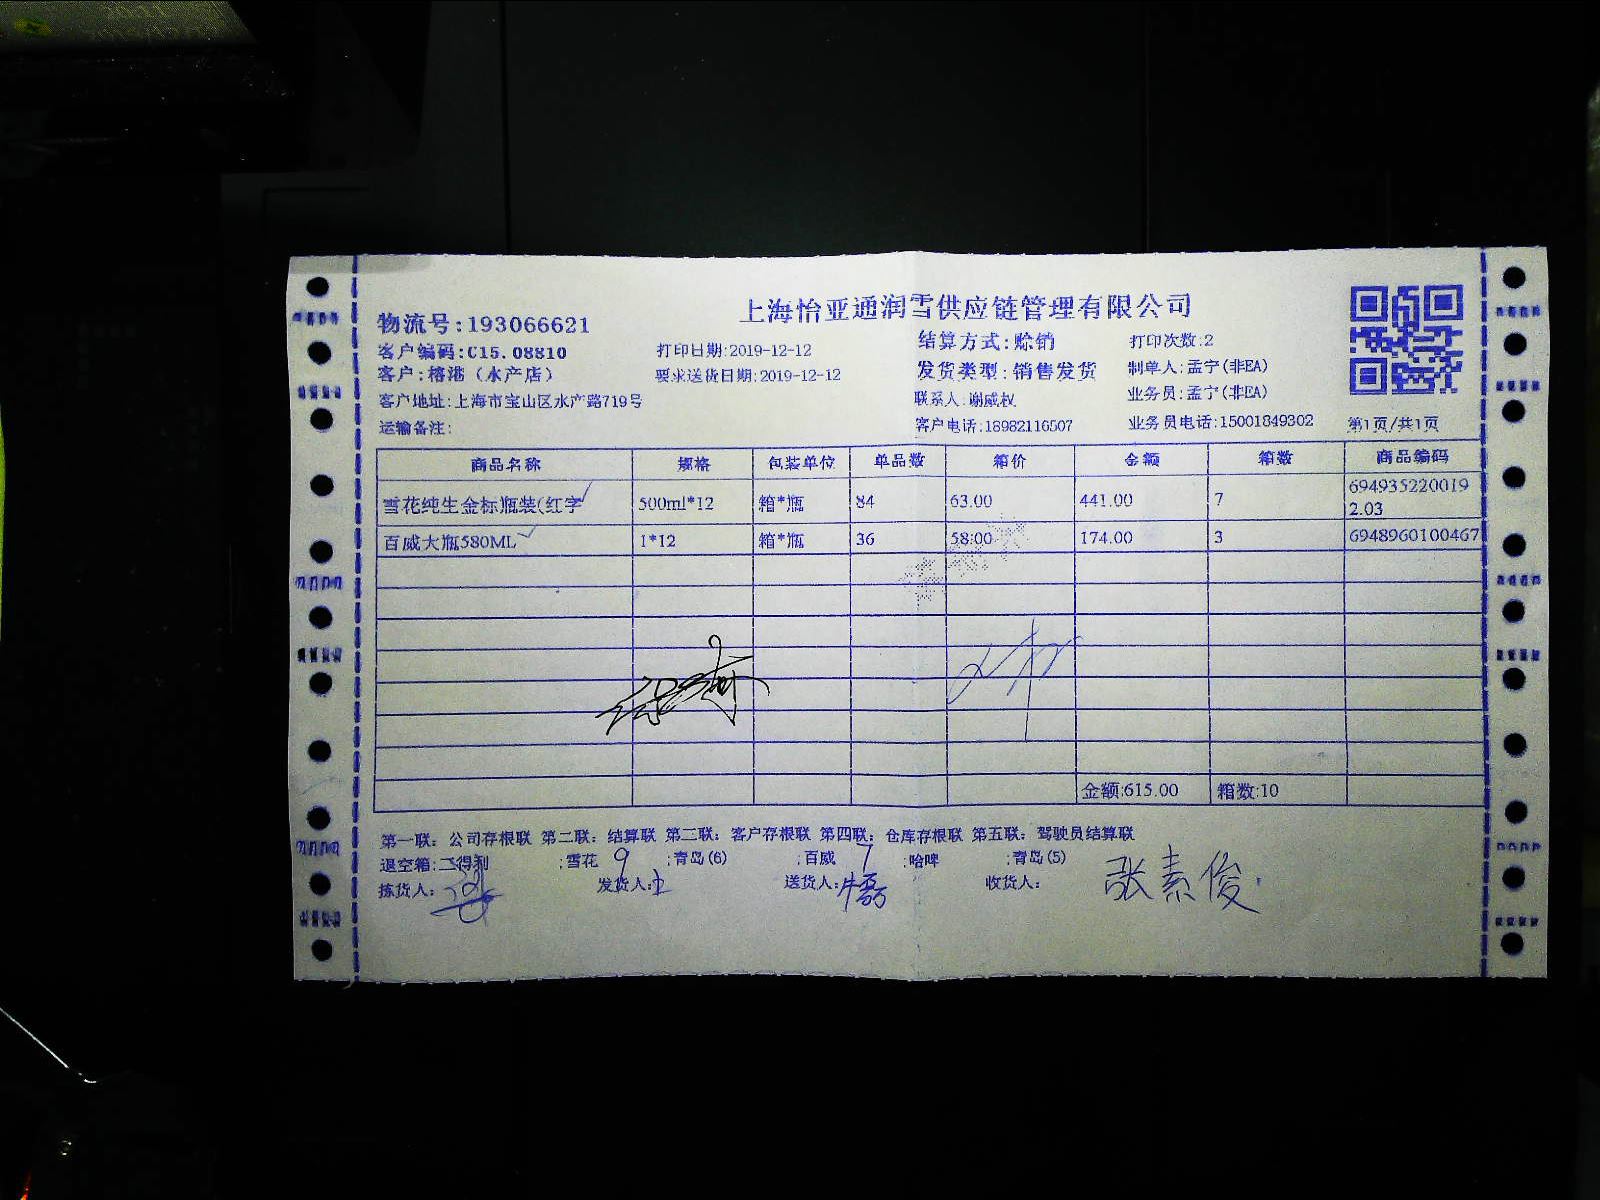 上海怡亚通润雪供应链管理有限公司
物流号:193066621
结算方式:赊销 打印次数:2
客户编码:C15.08810 打印日期:2019-12-12
发货类型:销售发货 制单人:孟宁(非EA)
客户:榕港（水产店） 要求送货日期:2019-12-12
联系人:谢威权 业务员:孟宁(非EA)
客户地址:上海市宝山区水产路719号
客户电话:18982116507 业务员电话:15001849302 第1页/共1页
运输备注:
商品名称 规格 包装单位 单品数 箱价 金额 箱数 商品编码
雪花纯生金标瓶装(红字 500ml*12 箱*瓶 84 63.00 441.00 7 6949352200192.03
百威大瓶580ML 1*12 箱*瓶 36 58.00 174.00 3 6948960100467
金额:615.00 箱数:10
第一联：公司存根联 第二联：结算联 第三联：客户存根联 第四联：仓库存根联 第五联：驾驶员结算联
退空箱:三得利 ;雪花 9 ;青岛(6) ;百威 7 ;哈啤 ;青岛(5)
拣货人: 发货人: 送货人:牛磊 收货人: 张素俊